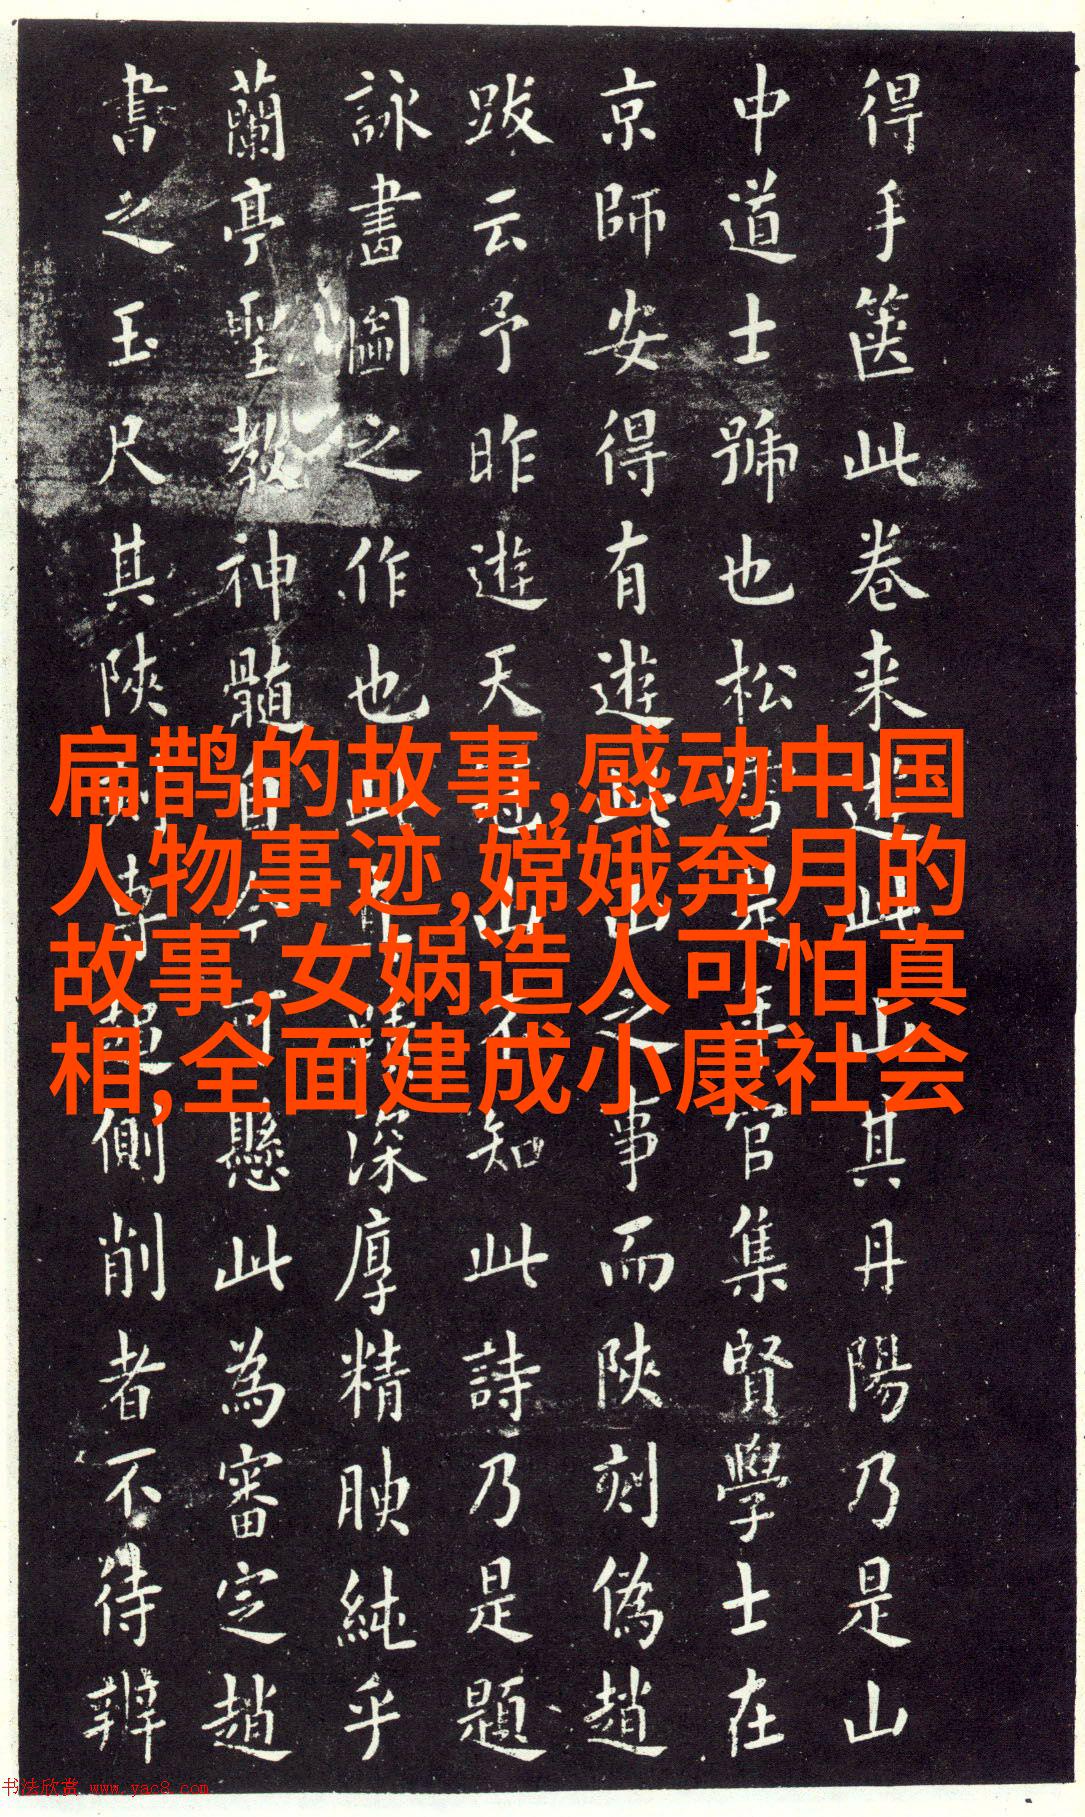 扁鹊的故事,感动中国
人物事迹,嫦娥奔月的
故事,女娲造人可怕真
相,全面建成小康社会
得手篋此卷来此止其丹陽乃是山
中道士號也松官集賢學士在
京師安得有遊山之事而陝刻偽趙
跋云予昨遊天冠山不知此詩乃是題
詠畫圖之作也此深厚精腴純乎
蘭亭聖教神髓自可懸此為審定趙
書之玉尺其陝刻專逞側削者不待辨
书法欣赏 www.yac8.com